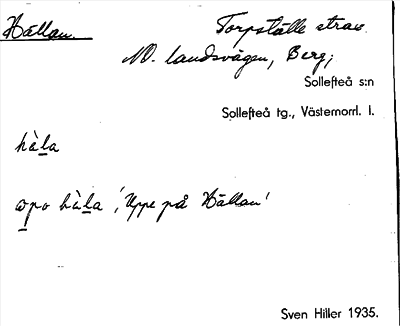 Hällan.
Torpställe strax
NO. landsvägen, Berg;
Sollefteå s:n
Sollefteå tg., Västernorrl. l.
hàla
opo hàla, 'Uppe på Hällan'
Sven Hiller 1935.